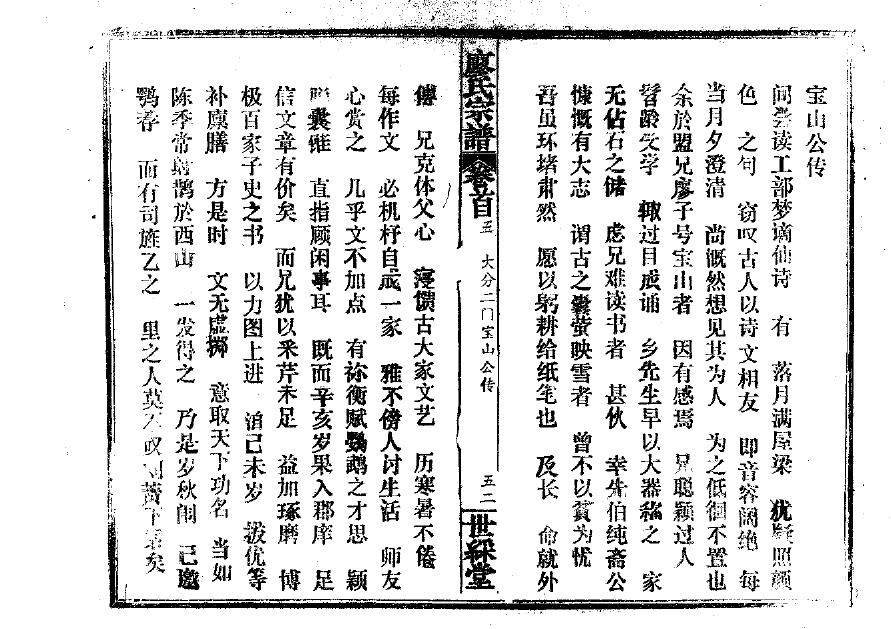 宝山公传
间尝读工部梦谪仙诗 有 落月满屋梁 犹疑照颜
色 之句 窃叹古人以诗文相友 即音容阔绝 每
当月夕澄清 尚慨然想见其为人 为之低徊不置也
余於盟兄廖子号宝山者 因有感焉 兄聪颖过人
髫龄受学 辄过目成诵 乡先生早以大器称之 家
无佔石之储 虑兄难读书者 甚伙 幸先伯纯斋公
慷慨有大志 谓古之囊萤映雪者 曾不以贫为忧
吾虽环堵肃然 愿以躬耕给纸笔也 及长 命就外
廖氏宗譜
卷首
五 大分二门宝山公传
五二
世綵堂
傅 兄克体父心 寝馈古大家文艺 历寒暑不倦
每作文 必机杼自成一家 雅不傍人讨生活 师友
心赏之 几乎文不加点 有祢衡赋鹦鹉之才思 颖
囊锥 直指顾闲事耳 既而辛亥岁果入郡庠 足
信文章有价矣 而兄犹以采芹未足 益加琢磨 博
极百家子史之书 以力图上进 洎己未岁 拔优等
补廪膳 方是时 文无虚掷 意取天下功名 当如
陈季常射鹊於西山 一发得之 乃是岁秋闱 已邀
鹗荐 而有司旌乙之 里之人莫不叹刘蕡下第矣